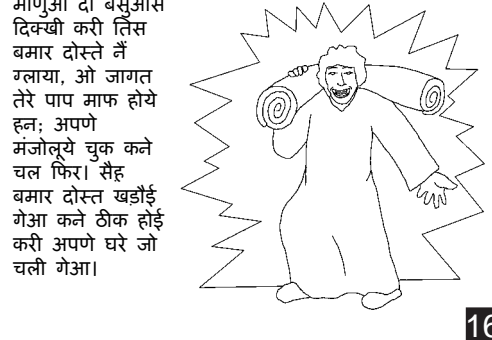 माणुआं दा बसुआस
दिक्खी करी तिस
बमार दोस्ते नैं
ग्लाया, ओ जागत
तेरे पाप माफ होये
हन; अपणे
मंजोलूये चुक कने
चल फिर। सैह़
बमार दोस्त खड़ौई
गेआ कने ठीक होई
करी अपणे घरे जो
चली गेआ।
16